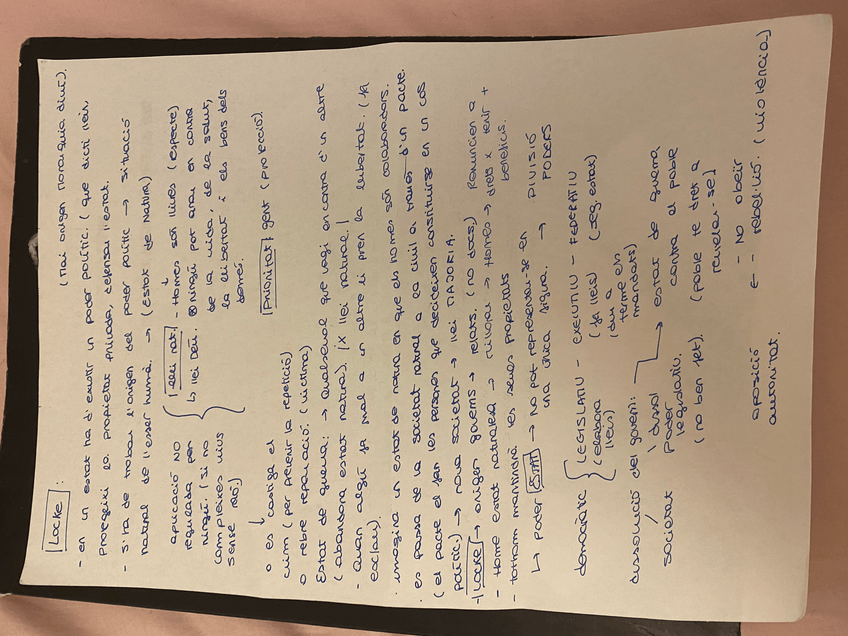 LOCKE: (mai origen monarquia diví).
- en un estat ha d'existir un poder polític. (que dicti lleis
protegeixi la propietat privada, defensar l'estat.
- s'ha de trobar l'origen del poder polític → situació
natural de l'ésser humà. → (Estat de natura)
aplicació NO
regulada per
ningú. (si no
compleixes vius
sense raó.)
llei nat. - Homes són lliures (respecte)
↳ llei Déu. ⊗ ningú pot anar en contra
de la vida, de la salut,
la llibertat i els bens dels
demés.
o es castiga el
crim (per prevenir la repetició) Prioritat: gent (protecció)
o rebre reparació. (víctima)
Estat de guerra: → Qualsevol que vagi en contra d'un altre
(abandona estat natura). (X llei natural.)
- Quan algú fa mal a un altre li pren la llibertat. (fa
esclau).
· imagina un estat de natura en que els homes són colaboradors.
· es passa de la societat natural a la civil a través d'un pacte.
(el pacte el fan les persones que decideixen constituirse en un cos
polític) → nova societat → llei MAJORIA.
- LOCKE → origen governs → relats. (no docs.) Renuncien a
- Home estat naturalesa → millorar → Homes → drets x tenir +
- tothom mantindrà les seves propietats beneficis.
↳ Poder ESTAT → No pot representar-se en → DIVISIÓ
una única figura. PODERS
democràtic { LEGISLATIU - EXECUTIU - FEDERATIU
(elabora (fa lleis) (seg. estat)
lleis) (dur a
terme els
mandats)
dissolució del govern: → estat de guerra
societat dissol contra el poble
poder (poble te dret a
legislatiu. revelar-se)
(no ben fet).
oposició ← - No obeir
autoritat. - rebel·lió. (violència)